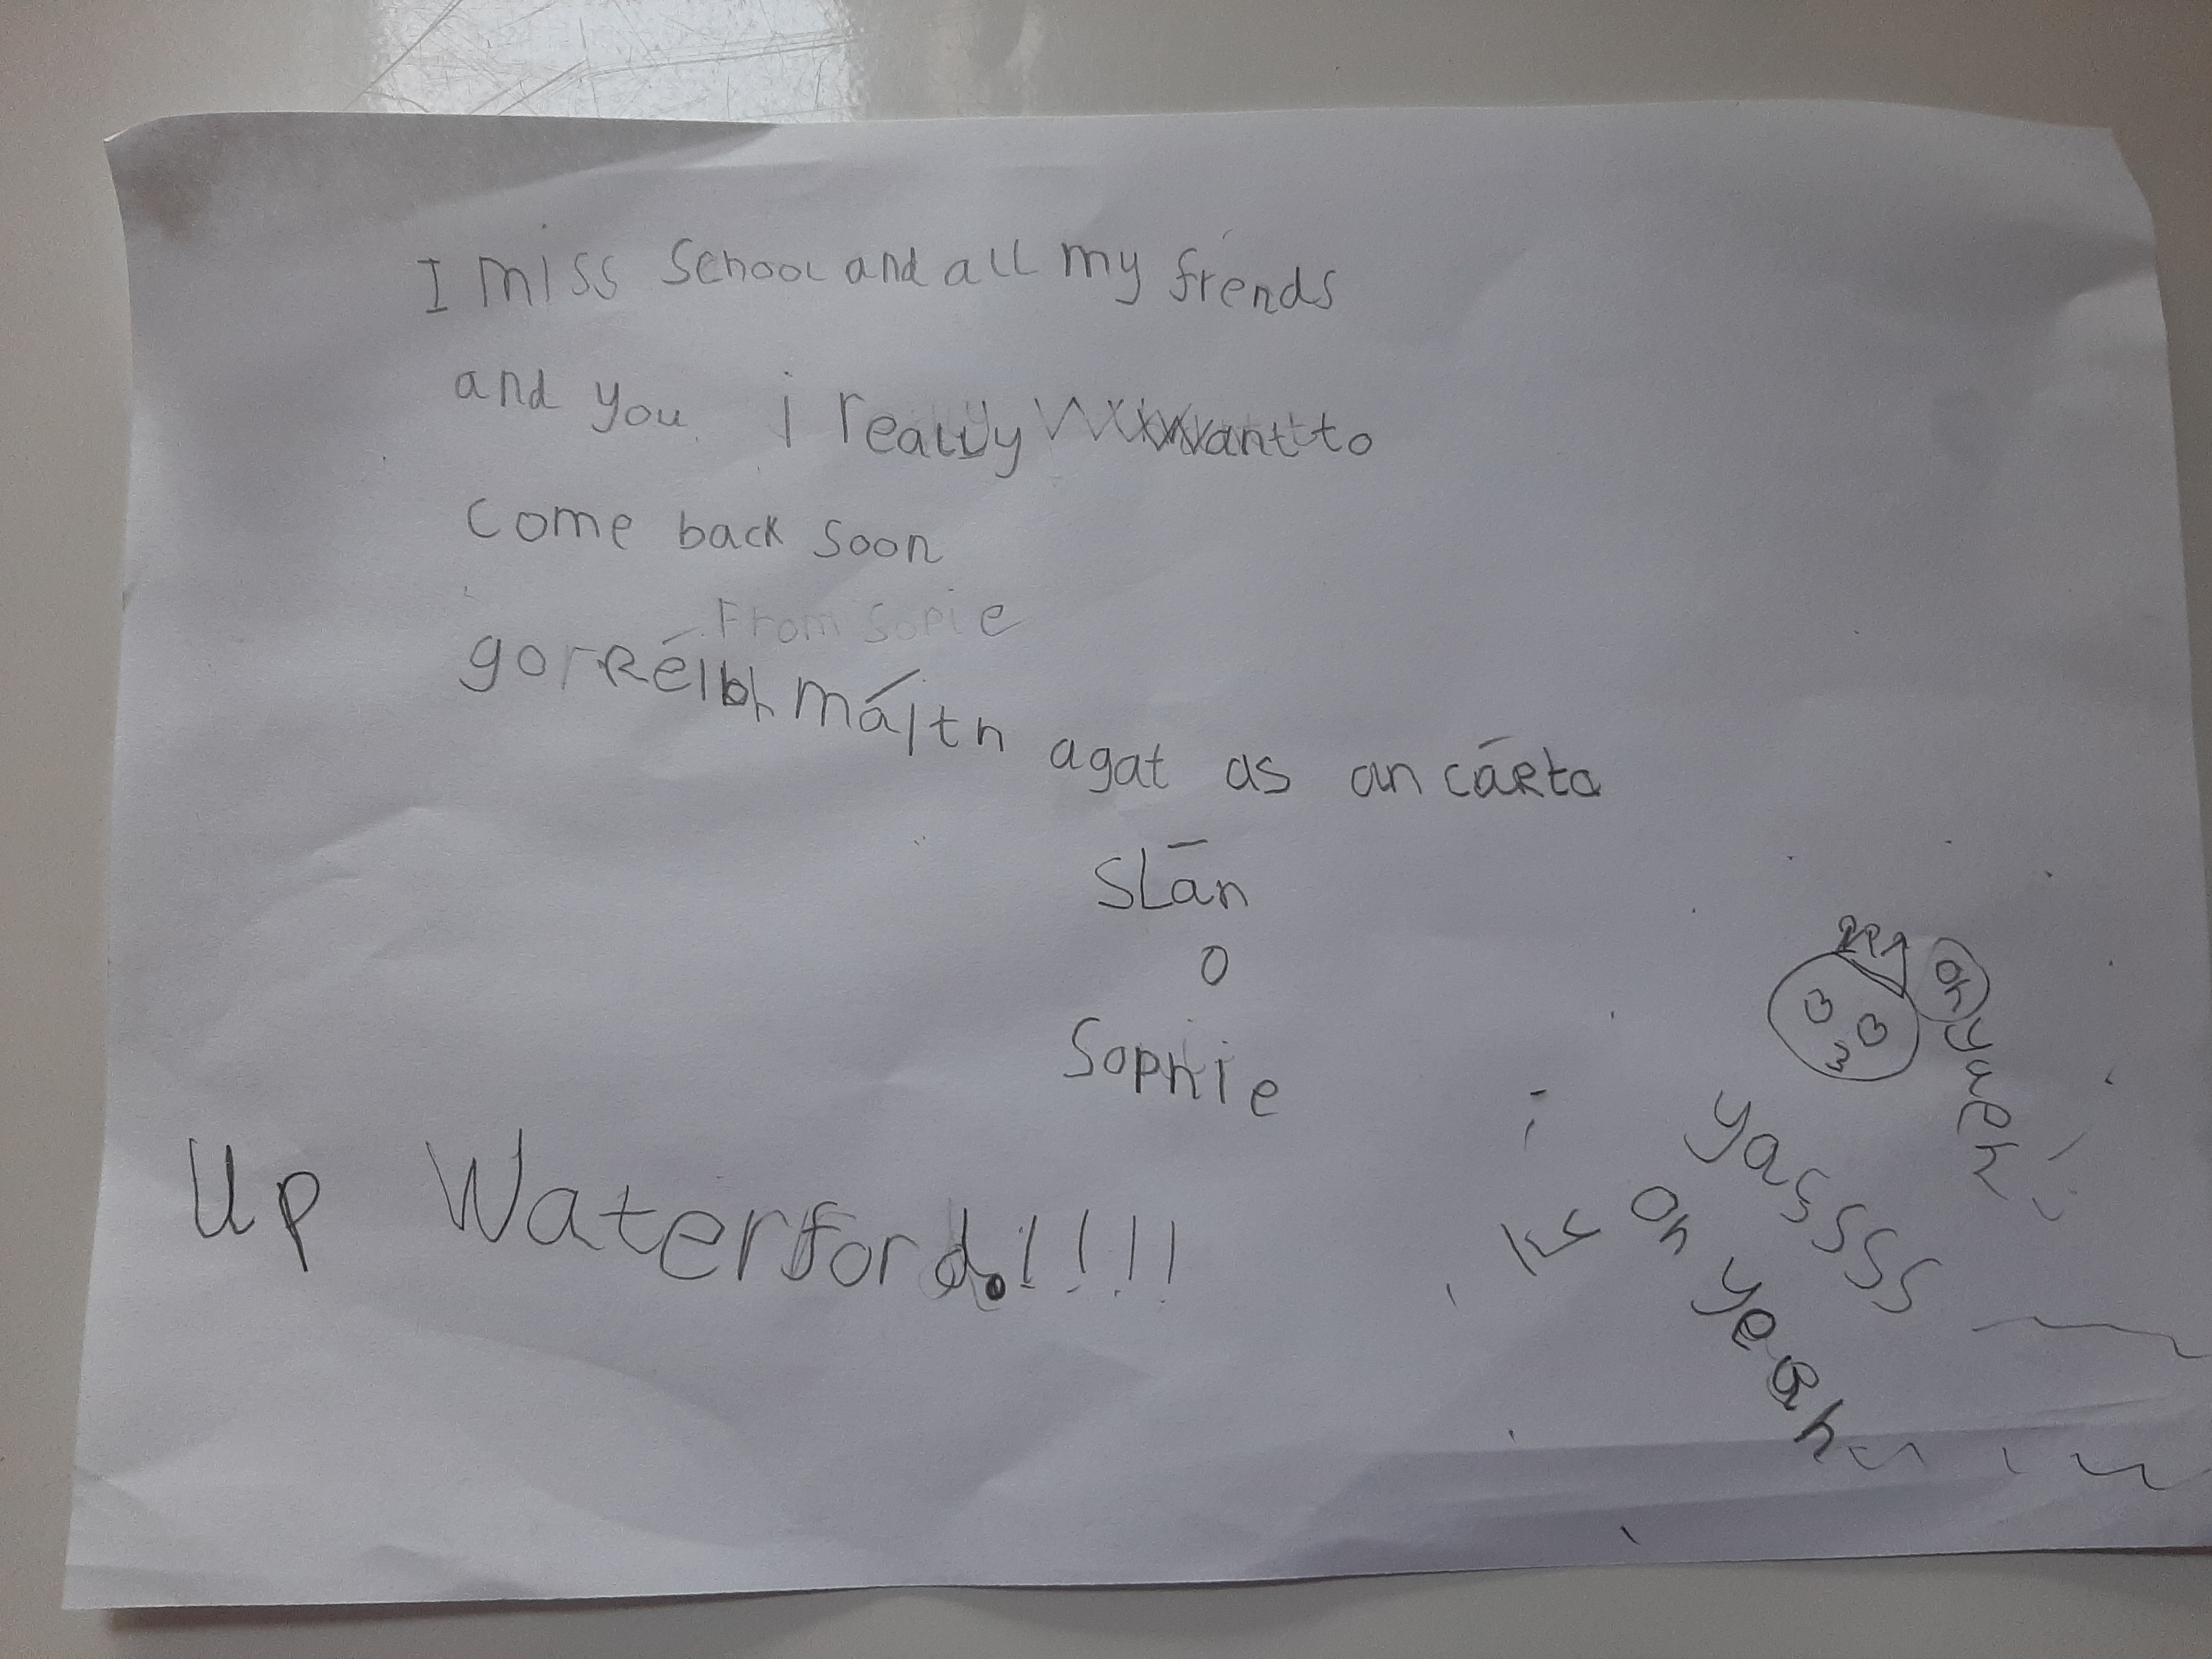 I miss school and all my frends
and you i really want to
come back soon
From Sopie
go réibh máith agat as an cárta
Slán
o
Sophie
Up Waterford.!!!!
oh yaeh
yasssss
oh yeah